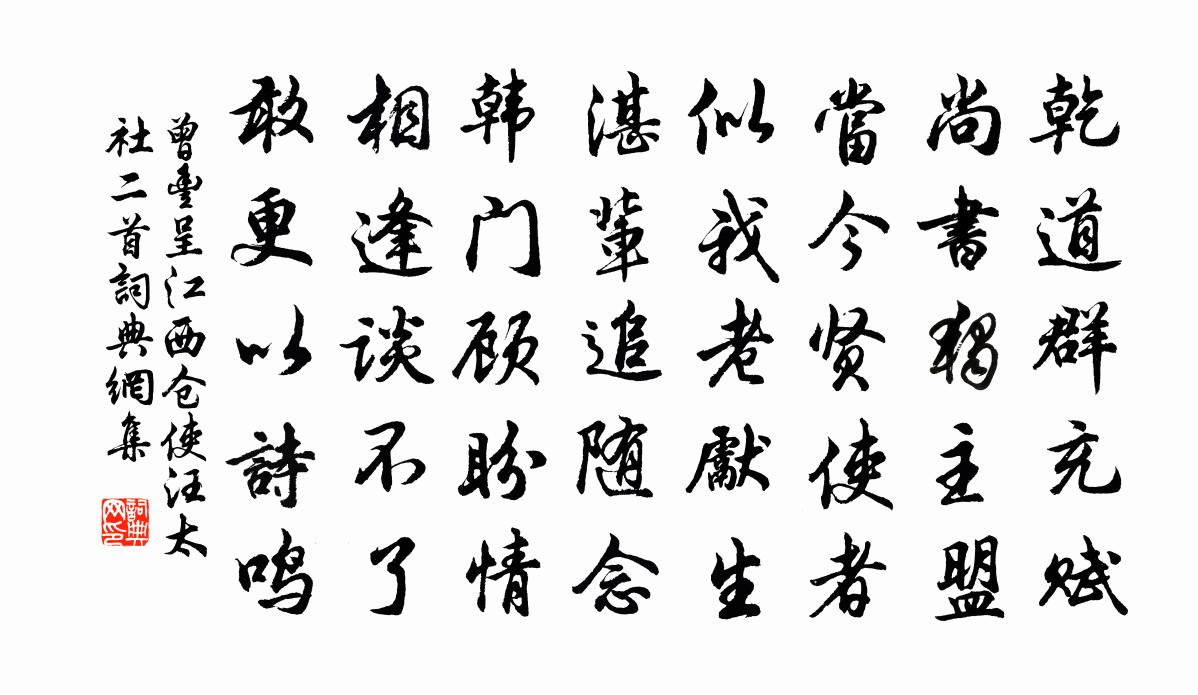 乾道群充赋
尚書独主盟
當今贤使者
似我老獻生
湛輩追随念
韩门顾盼情
相逢谈不了
敢更以詩鳴
曾豐呈江西仓使汪太
社二首詞典網集
詞典
网印